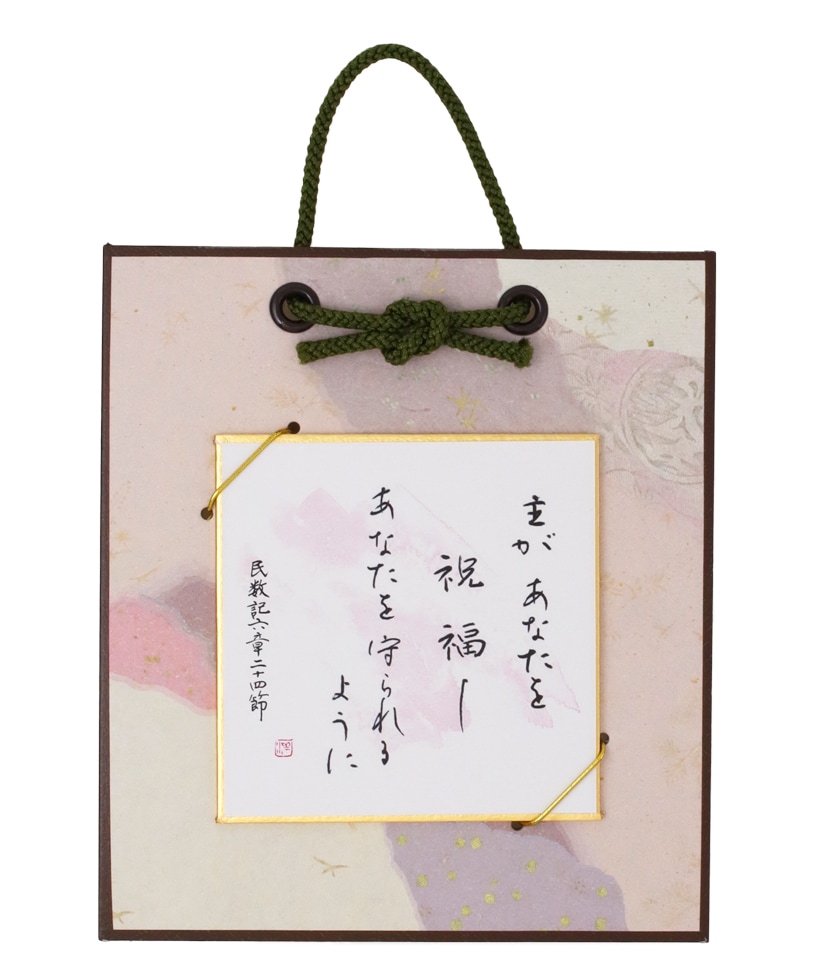 主があなたを
祝福し
あなたを守られる
ように
民数記六章二十四節